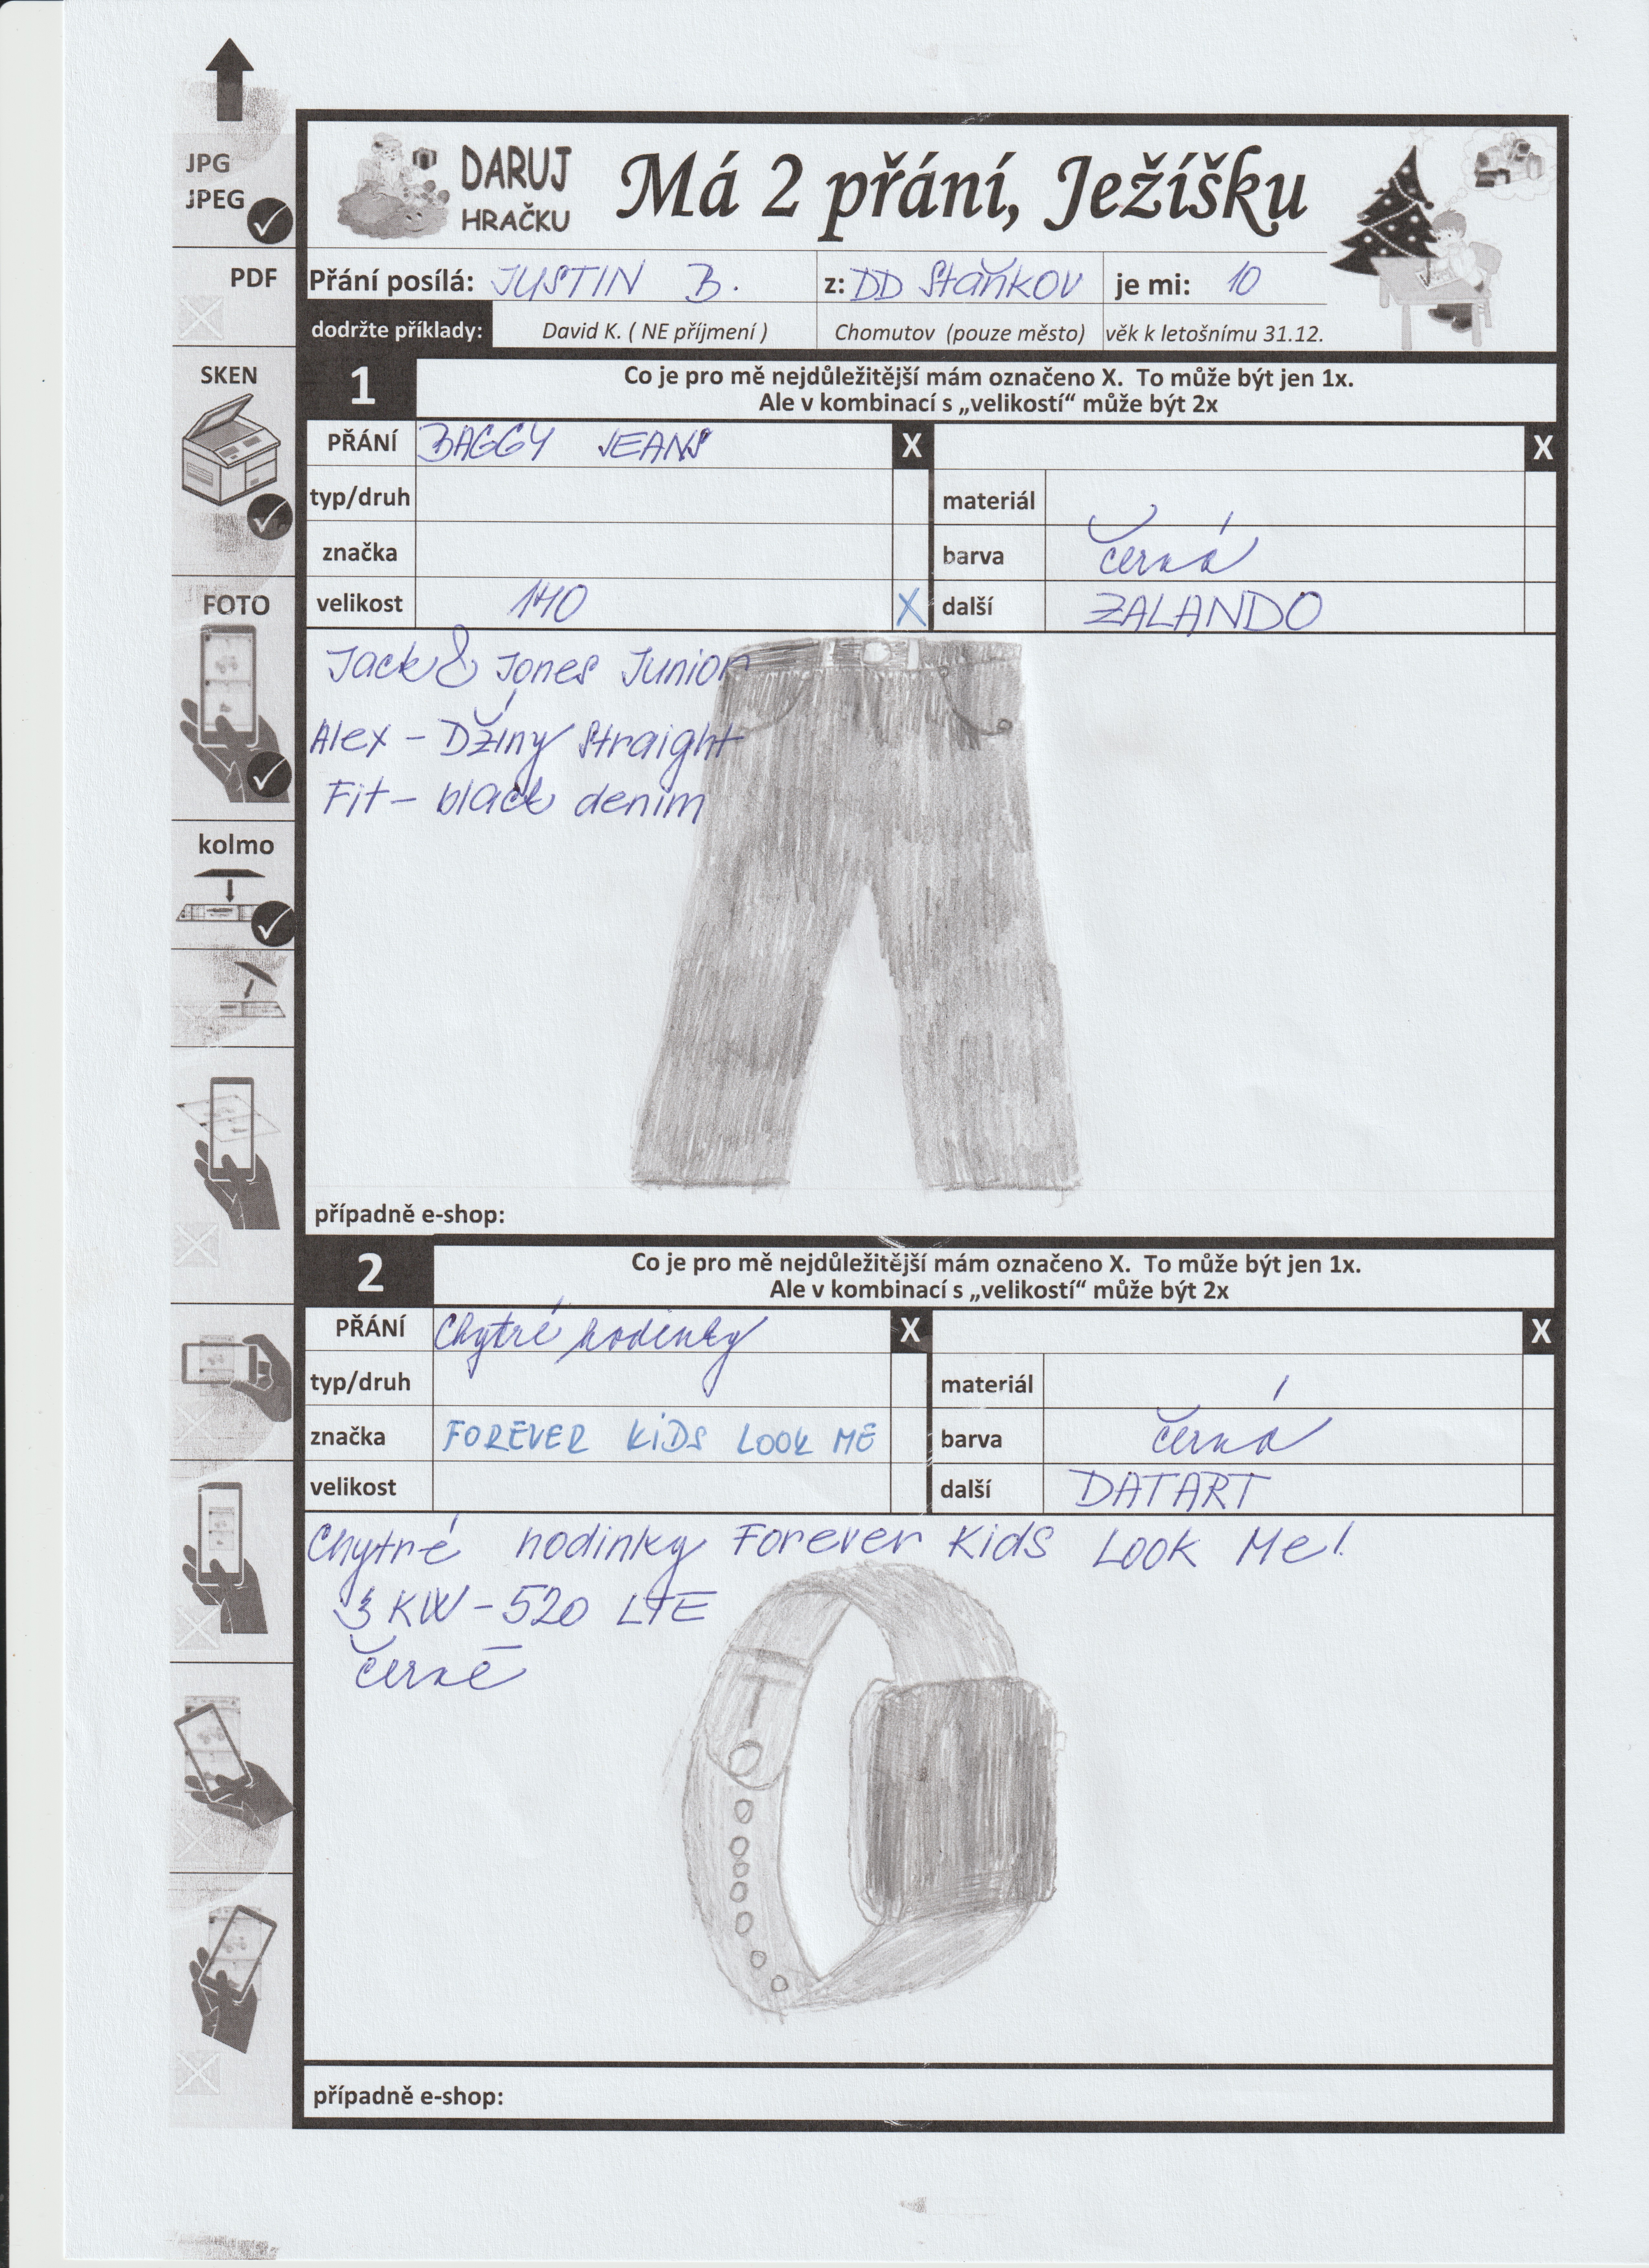 JPG
JPEG
PDF
SKEN
FOTO
kolmo
DARUJ
HRAČKU
Má 2 přání, Ježíšku
Přání posílá: JUSTIN B. z: DD Staňkov je mi: 10
dodržte příklady: David K. ( NE příjmení ) Chomutov (pouze město) věk k letošnímu 31.12.
1 Co je pro mě nejdůležitější mám označeno X. To může být jen 1x.
Ale v kombinací s „velikostí“ může být 2x
PŘÁNÍ BAGGY JEANS X X
typ/druh materiál
značka barva černá
velikost 140 X další ZALANDO
Jack & Jones Junior
Alex - Džíny straight
Fit - black denim
případně e-shop:
2 Co je pro mě nejdůležitější mám označeno X. To může být jen 1x.
Ale v kombinací s „velikostí“ může být 2x
PŘÁNÍ Chytré hodinky X X
typ/druh materiál
značka FOREVER KIDS LOOK ME barva černá
velikost další DATART
Chytré hodinky Forever Kids Look Me!
3 KW-520 LTE
černé
případně e-shop: